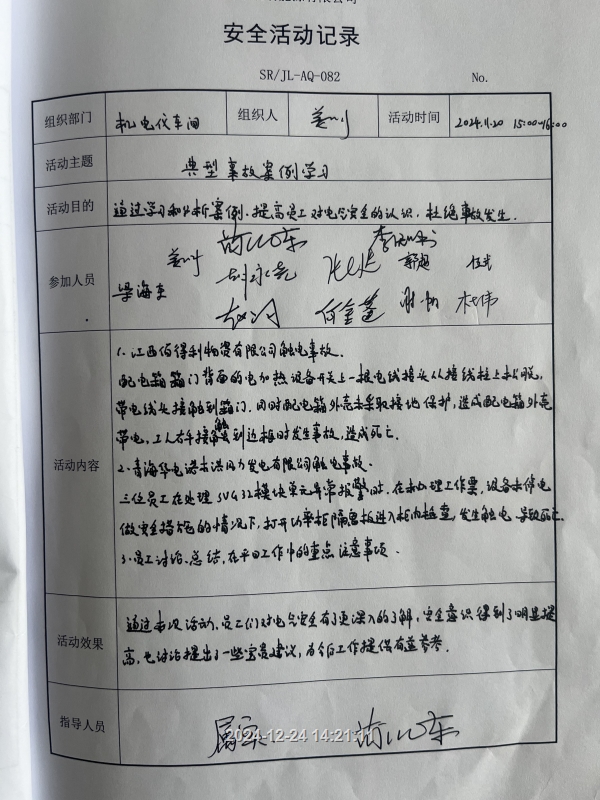 安全活动记录
SR/JL-AQ-082 No.
组织部门 机电仪车间 组织人 活动时间 2024.11.20 15:00-16:00
活动主题 典型事故案例学习
活动目的 通过学习和分析案例、提高员工对电气安全的认识，杜绝事故发生.
参加人员
梁海东
活动内容
1、江西佰得利物资有限公司触电事故.
配电箱箱门背面的电加热设备开关上一根电线接头从接线柱上松脱，
带电线头接触到箱门，同时配电箱外壳未采取接地保护，造成配电箱外壳
带电，工人右手接触到边框时发生事故，造成死亡.
2、青海华电诺木洪风力发电有限公司触电事故.
三位员工在处理SVG 32模块单元异常报警时，在未办理工作票，设备未停电
做安全措施的情况下，打开功率柜隔离板进入柜内检查，发生触电，导致死亡.
3、员工讨论、总结，在平日工作中的重点注意事项.
活动效果
通过本次活动，员工们对电气安全有了更深入的了解，安全意识得到了明显提
高，也讨论提出了一些宝贵建议，为今后工作提供有益参考.
指导人员
2024-12-24 14:21:11